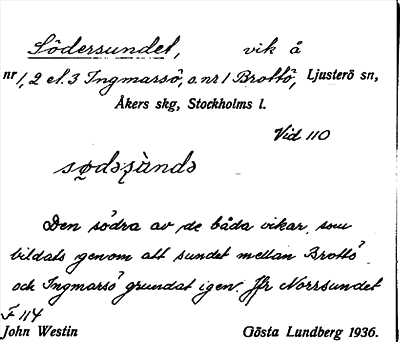 Södersundet, vik å
nr 1, 2 el. 3 Ingmarsö, o. nr 1 Brottö, Ljusterö sn,
Åkers skg, Stockholms l.
Vid 110
Den södra av de båda vikar, som
bildats genom att sundet mellan Brottö
och Ingmarsö grundat igen. Jfr Norrsundet
F 114
John Westin Gösta Lundberg 1936.